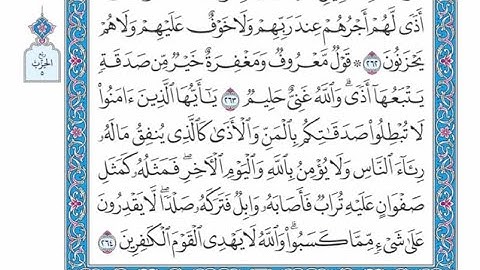 أَذًى لَّهُمْ أَجْرُهُمْ عِندَ رَبِّهِمْ وَلَا خَوْفٌ عَلَيْهِمْ وَلَا هُمْ
يَحْزَنُونَ ٢٦٢ ۞ قَوْلٌ مَّعْرُوفٌ وَمَغْفِرَةٌ خَيْرٌ مِّن صَدَقَةٍ
يَتْبَعُهَا أَذًى ۗ وَاللَّهُ غَنِيٌّ حَلِيمٌ ٢٦٣ يَا أَيُّهَا الَّذِينَ ءَامَنُوا
لَا تُبْطِلُوا صَدَقَاتِكُم بِالْمَنِّ وَالْأَذَىٰ كَالَّذِي يُنفِقُ مَالَهُ
رِئَاءَ النَّاسِ وَلَا يُؤْمِنُ بِاللَّهِ وَالْيَوْمِ الْآخِرِ ۖ فَمَثَلُهُ كَمَثَلِ
صَفْوَانٍ عَلَيْهِ تُرَابٌ فَأَصَابَهُ وَابِلٌ فَتَرَكَهُ صَلْدًا ۖ لَّا يَقْدِرُونَ
عَلَىٰ شَيْءٍ مِّمَّا كَسَبُوا ۗ وَاللَّهُ لَا يَهْدِي الْقَوْمَ الْكَافِرِينَ ٢٦٤
ربع
الحزب
٥